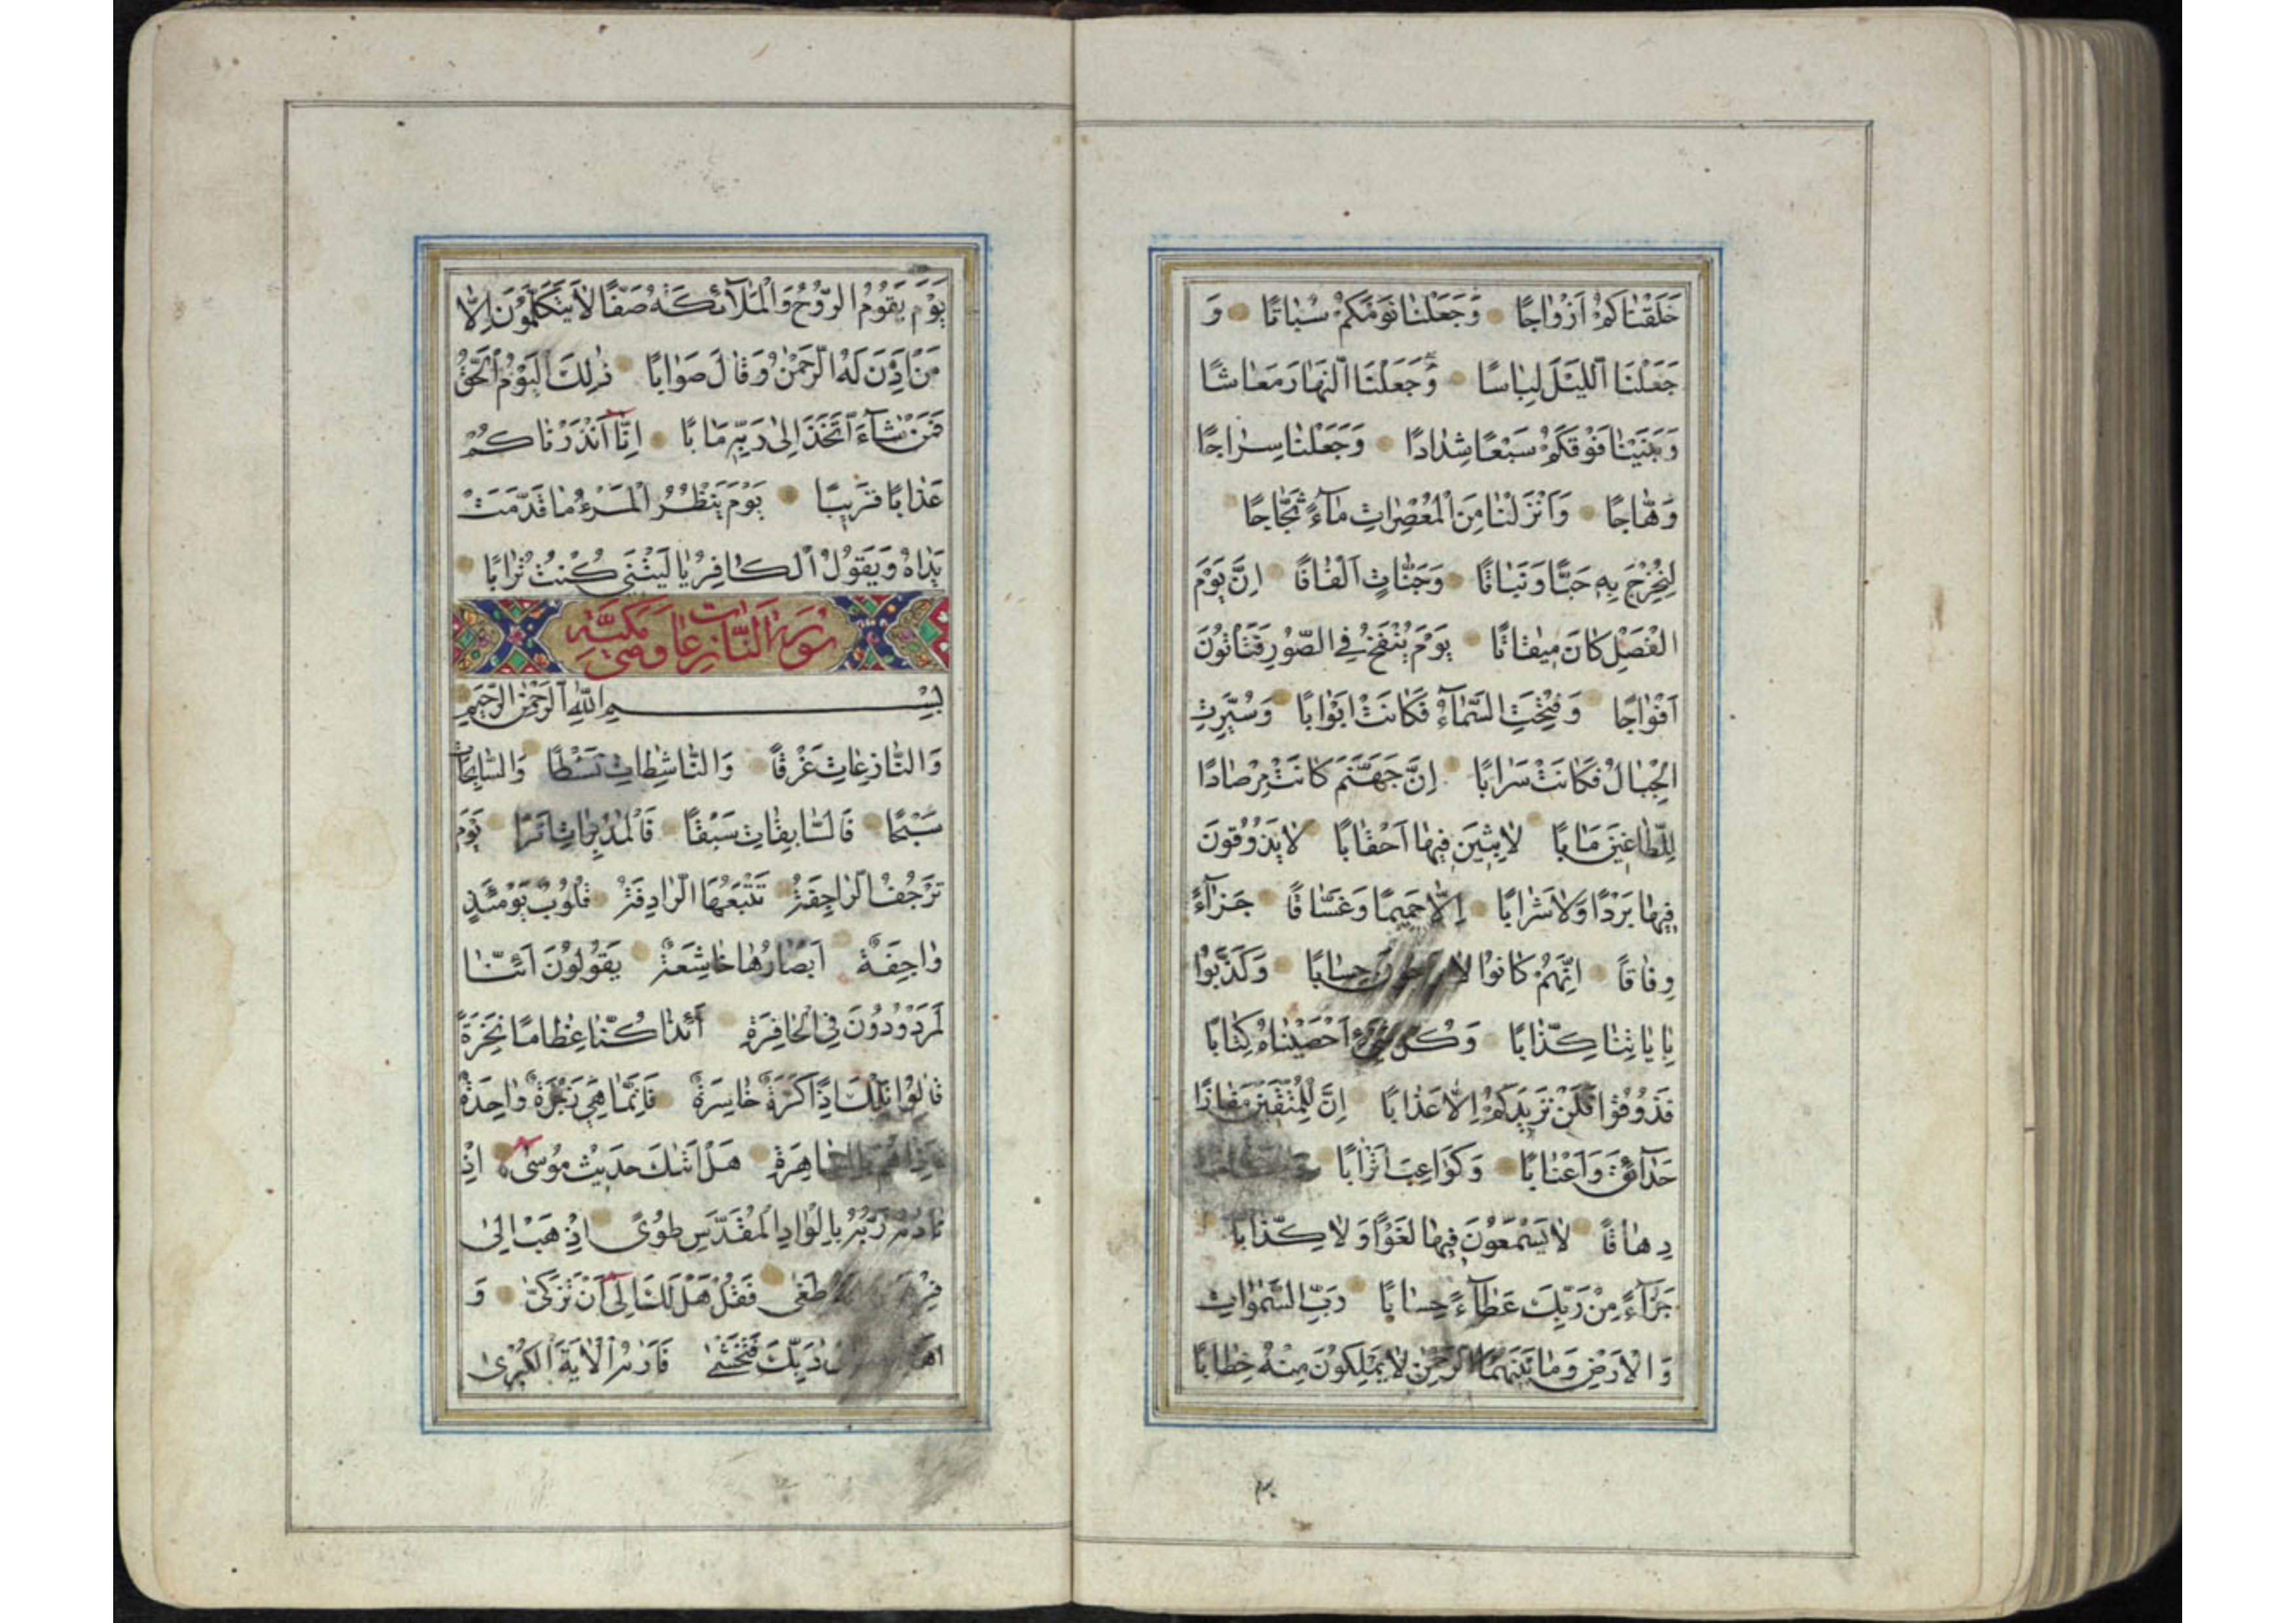 خَلَقْنَاكُمْ اَزْوَاجًا وَجَعَلْنَا نَوْمَكُمْ سُبَاتًا وَ
جَعَلْنَا اللَّيْلَ لِبَاسًا وَجَعَلْنَا النَّهَارَ مَعَاشًا
وَبَنَيْنَا فَوْقَكُمْ سَبْعًا شِدَادًا وَجَعَلْنَا سِرَاجًا
وَهَّاجًا وَاَنْزَلْنَا مِنَ الْمُعْصِرَاتِ مَآءً ثَجَّاجًا
لِنُخْرِجَ بِهِ حَبًّا وَنَبَاتًا وَجَنَّاتٍ اَلْفَافًا اِنَّ يَوْمَ
الْفَصْلِ كَانَ مِيقَاتًا يَوْمَ يُنْفَخُ فِي الصُّورِ فَتَأْتُونَ
اَفْوَاجًا وَفُتِحَتِ السَّمَآءُ فَكَانَتْ اَبْوَابًا وَسُيِّرَتِ
الْجِبَالُ فَكَانَتْ سَرَابًا اِنَّ جَهَنَّمَ كَانَتْ مِرْصَادًا
لِلطَّاغِينَ مَاٰبًا لَابِثِينَ فِيهَا اَحْقَابًا لَا يَذُوقُونَ
فِيهَا بَرْدًا وَلَا شَرَابًا اِلَّا حَمِيمًا وَغَسَّاقًا جَزَآءً
وِفَاقًا اِنَّهُمْ كَانُوا لَا حِسَابًا وَكَذَّبُوا
بِاٰيَاتِنَا كِذَّابًا وَكُلَّ اَحْصَيْنَاهُ كِتَابًا
فَذُوقُوا فَلَنْ نَزِيدَكُمْ اِلَّا عَذَابًا اِنَّ لِلْمُتَّقِينَ مَفَازًا
حَدَآئِقَ وَاَعْنَابًا وَكَوَاعِبَ اَتْرَابًا
دِهَاقًا لَا يَسْمَعُونَ فِيهَا لَغْوًا وَلَا كِذَّابًا
جَزَآءً مِنْ رَبِّكَ عَطَآءً حِسَابًا رَبِّ السَّمٰوَاتِ
وَالْاَرْضِ وَمَا بَيْنَهُمَا الرَّحْمٰنِ لَا يَمْلِكُونَ مِنْهُ خِطَابًا
يَوْمَ يَقُومُ الرُّوحُ وَالْمَلَآئِكَةُ صَفًّا لَا يَتَكَلَّمُونَ اِلَّا
مَنْ اَذِنَ لَهُ الرَّحْمٰنُ وَقَالَ صَوَابًا ذٰلِكَ الْيَوْمُ الْحَقُّ
فَمَنْ شَآءَ اتَّخَذَ اِلٰى رَبِّهِ مَاٰبًا اِنَّا اَنْذَرْنَاكُمْ
عَذَابًا قَرِيبًا يَوْمَ يَنْظُرُ الْمَرْءُ مَا قَدَّمَتْ
يَدَاهُ وَيَقُولُ الْكَافِرُ يَا لَيْتَنِي كُنْتُ تُرَابًا
سُورَةُ النَّازِعَات وَهِيَ مَكِّيَّة
بِسْمِ اللّٰهِ الرَّحْمٰنِ الرَّحِيمِ
وَالنَّازِعَاتِ غَرْقًا وَالنَّاشِطَاتِ نَشْطًا وَالسَّابِحَاتِ
سَبْحًا فَالسَّابِقَاتِ سَبْقًا فَالْمُدَبِّرَاتِ اَمْرًا يَوْمَ
تَرْجُفُ الرَّاجِفَةُ تَتْبَعُهَا الرَّادِفَةُ قُلُوبٌ يَوْمَئِذٍ
وَاجِفَةٌ اَبْصَارُهَا خَاشِعَةٌ يَقُولُونَ اَئِنَّا
لَمَرْدُودُونَ فِي الْحَافِرَةِ اَئِذَا كُنَّا عِظَامًا نَخِرَةً
قَالُوا تِلْكَ اِذًا كَرَّةٌ خَاسِرَةٌ فَاِنَّمَا هِيَ زَجْرَةٌ وَاحِدَةٌ
فَاِذَا هُمْ بِالسَّاهِرَةِ هَلْ اَتٰىكَ حَدِيثُ مُوسٰى اِذْ
نَادٰىهُ رَبُّهُ بِالْوَادِ الْمُقَدَّسِ طُوًى اِذْهَبْ اِلٰى
طَغٰى فَقُلْ هَلْ لَكَ اِلٰى اَنْ تَزَكّٰى وَ
رَبِّكَ فَتَخْشٰى فَاَرٰىهُ الْاٰيَةَ الْكُبْرٰى